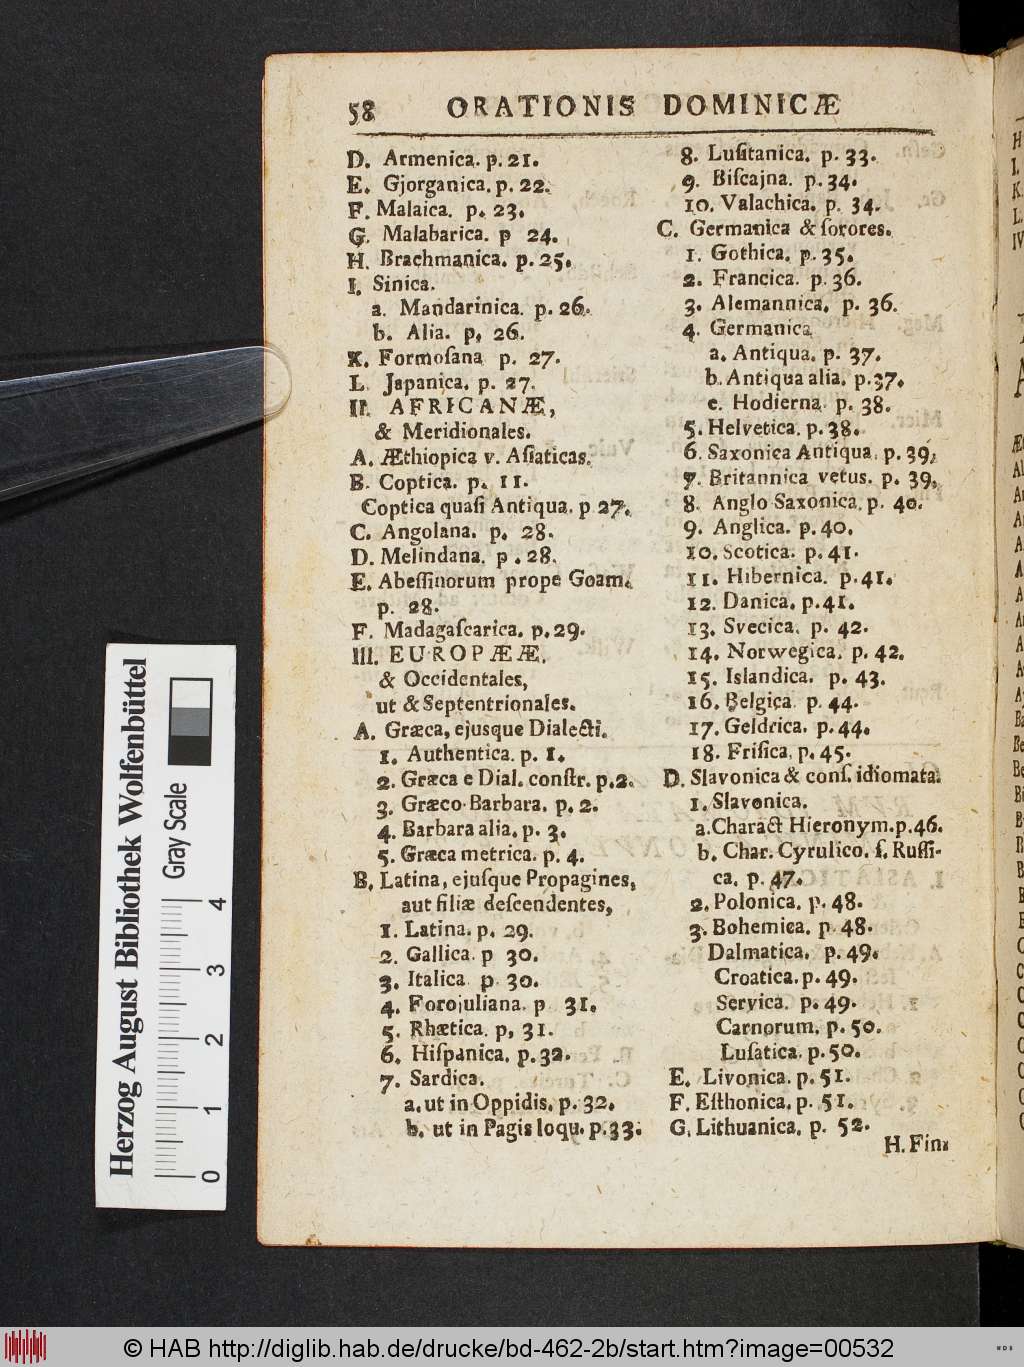 58 ORATIONIS DOMINICÆ
D. Armenica. p. 21.
E. Gjorganica. p. 22.
F. Malaica. p. 23.
G. Malabarica. p 24.
H. Brachmanica. p. 25.
I. Sinica.
a. Mandarinica. p. 26.
b. Alia. p, 26.
K. Formoſana p. 27.
L. Japanica. p. 27.
II. AFRICANÆ,
& Meridionales.
A. Æthiopica v. Aſiaticas.
B. Coptica. p. 11.
Coptica quaſi Antiqua. p 27.
C. Angolana. p. 28.
D. Melindana. p. 28.
E. Abeſſinorum prope Goam.
p. 28.
F. Madagaſcarica. p. 29.
III. EUROPÆÆ.
& Occidentales,
ut & Septentrionales.
A. Græca, ejusque Dialecti.
1. Authentica. p. 1.
2. Græca e Dial. conſtr. p. 2.
3. Græco-Barbara. p. 2.
4. Barbara alia. p. 3.
5. Græca metrica. p. 4.
B. Latina, ejuſque Propagines,
aut filiæ deſcendentes,
1. Latina. p. 29.
2. Gallica. p 30.
3. Italica p. 30.
4. Forojuliana. p 31.
5. Rhætica. p, 31.
6. Hiſpanica. p. 32.
7. Sardica.
a. ut in Oppidis. p. 32.
b. ut in Pagis loqu. p. 33.
8. Luſitanica. p. 33.
9. Biſcajna. p. 34.
10. Valachica. p. 34.
C. Germanica & ſorores.
1. Gothica. p. 35.
2. Francica. p. 36.
3. Alemannica. p. 36.
4. Germanica
a. Antiqua. p. 37.
b. Antiqua alia. p. 37.
c. Hodierna p. 38.
5. Helvetica. p. 38.
6. Saxonica Antiqua. p. 39.
7. Britannica vetus. p. 39.
8. Anglo Saxonica. p. 40.
9. Anglica. p. 40.
10. Scotica. p. 41.
11. Hibernica. p. 41.
12. Danica. p. 41.
13. Svecica. p. 42.
14. Norwegica. p. 42.
15. Islandica. p. 43.
16. Belgica. p. 44.
17. Geldrica. p. 44.
18. Friſica. p. 45.
D. Slavonica & conſ. idiomata.
1. Slavonica.
a. Charact Hieronym. p. 46.
b. Char. Cyrulico. ſ. Ruſſi-
ca. p. 47.
2. Polonica. p. 48.
3. Bohemica. p. 48.
Dalmatica. p. 49.
Croatica. p. 49.
Servica. p. 49.
Carnorum. p. 50.
Luſatica. p. 50.
E. Livonica. p. 51.
F. Eſthonica. p. 51.
G. Lithuanica. p. 52.
H. Fin-
Herzog August Bibliothek Wolfenbüttel
Gray Scale
0 1 2 3 4
© HAB http://diglib.hab.de/drucke/bd-462-2b/start.htm?image=00532